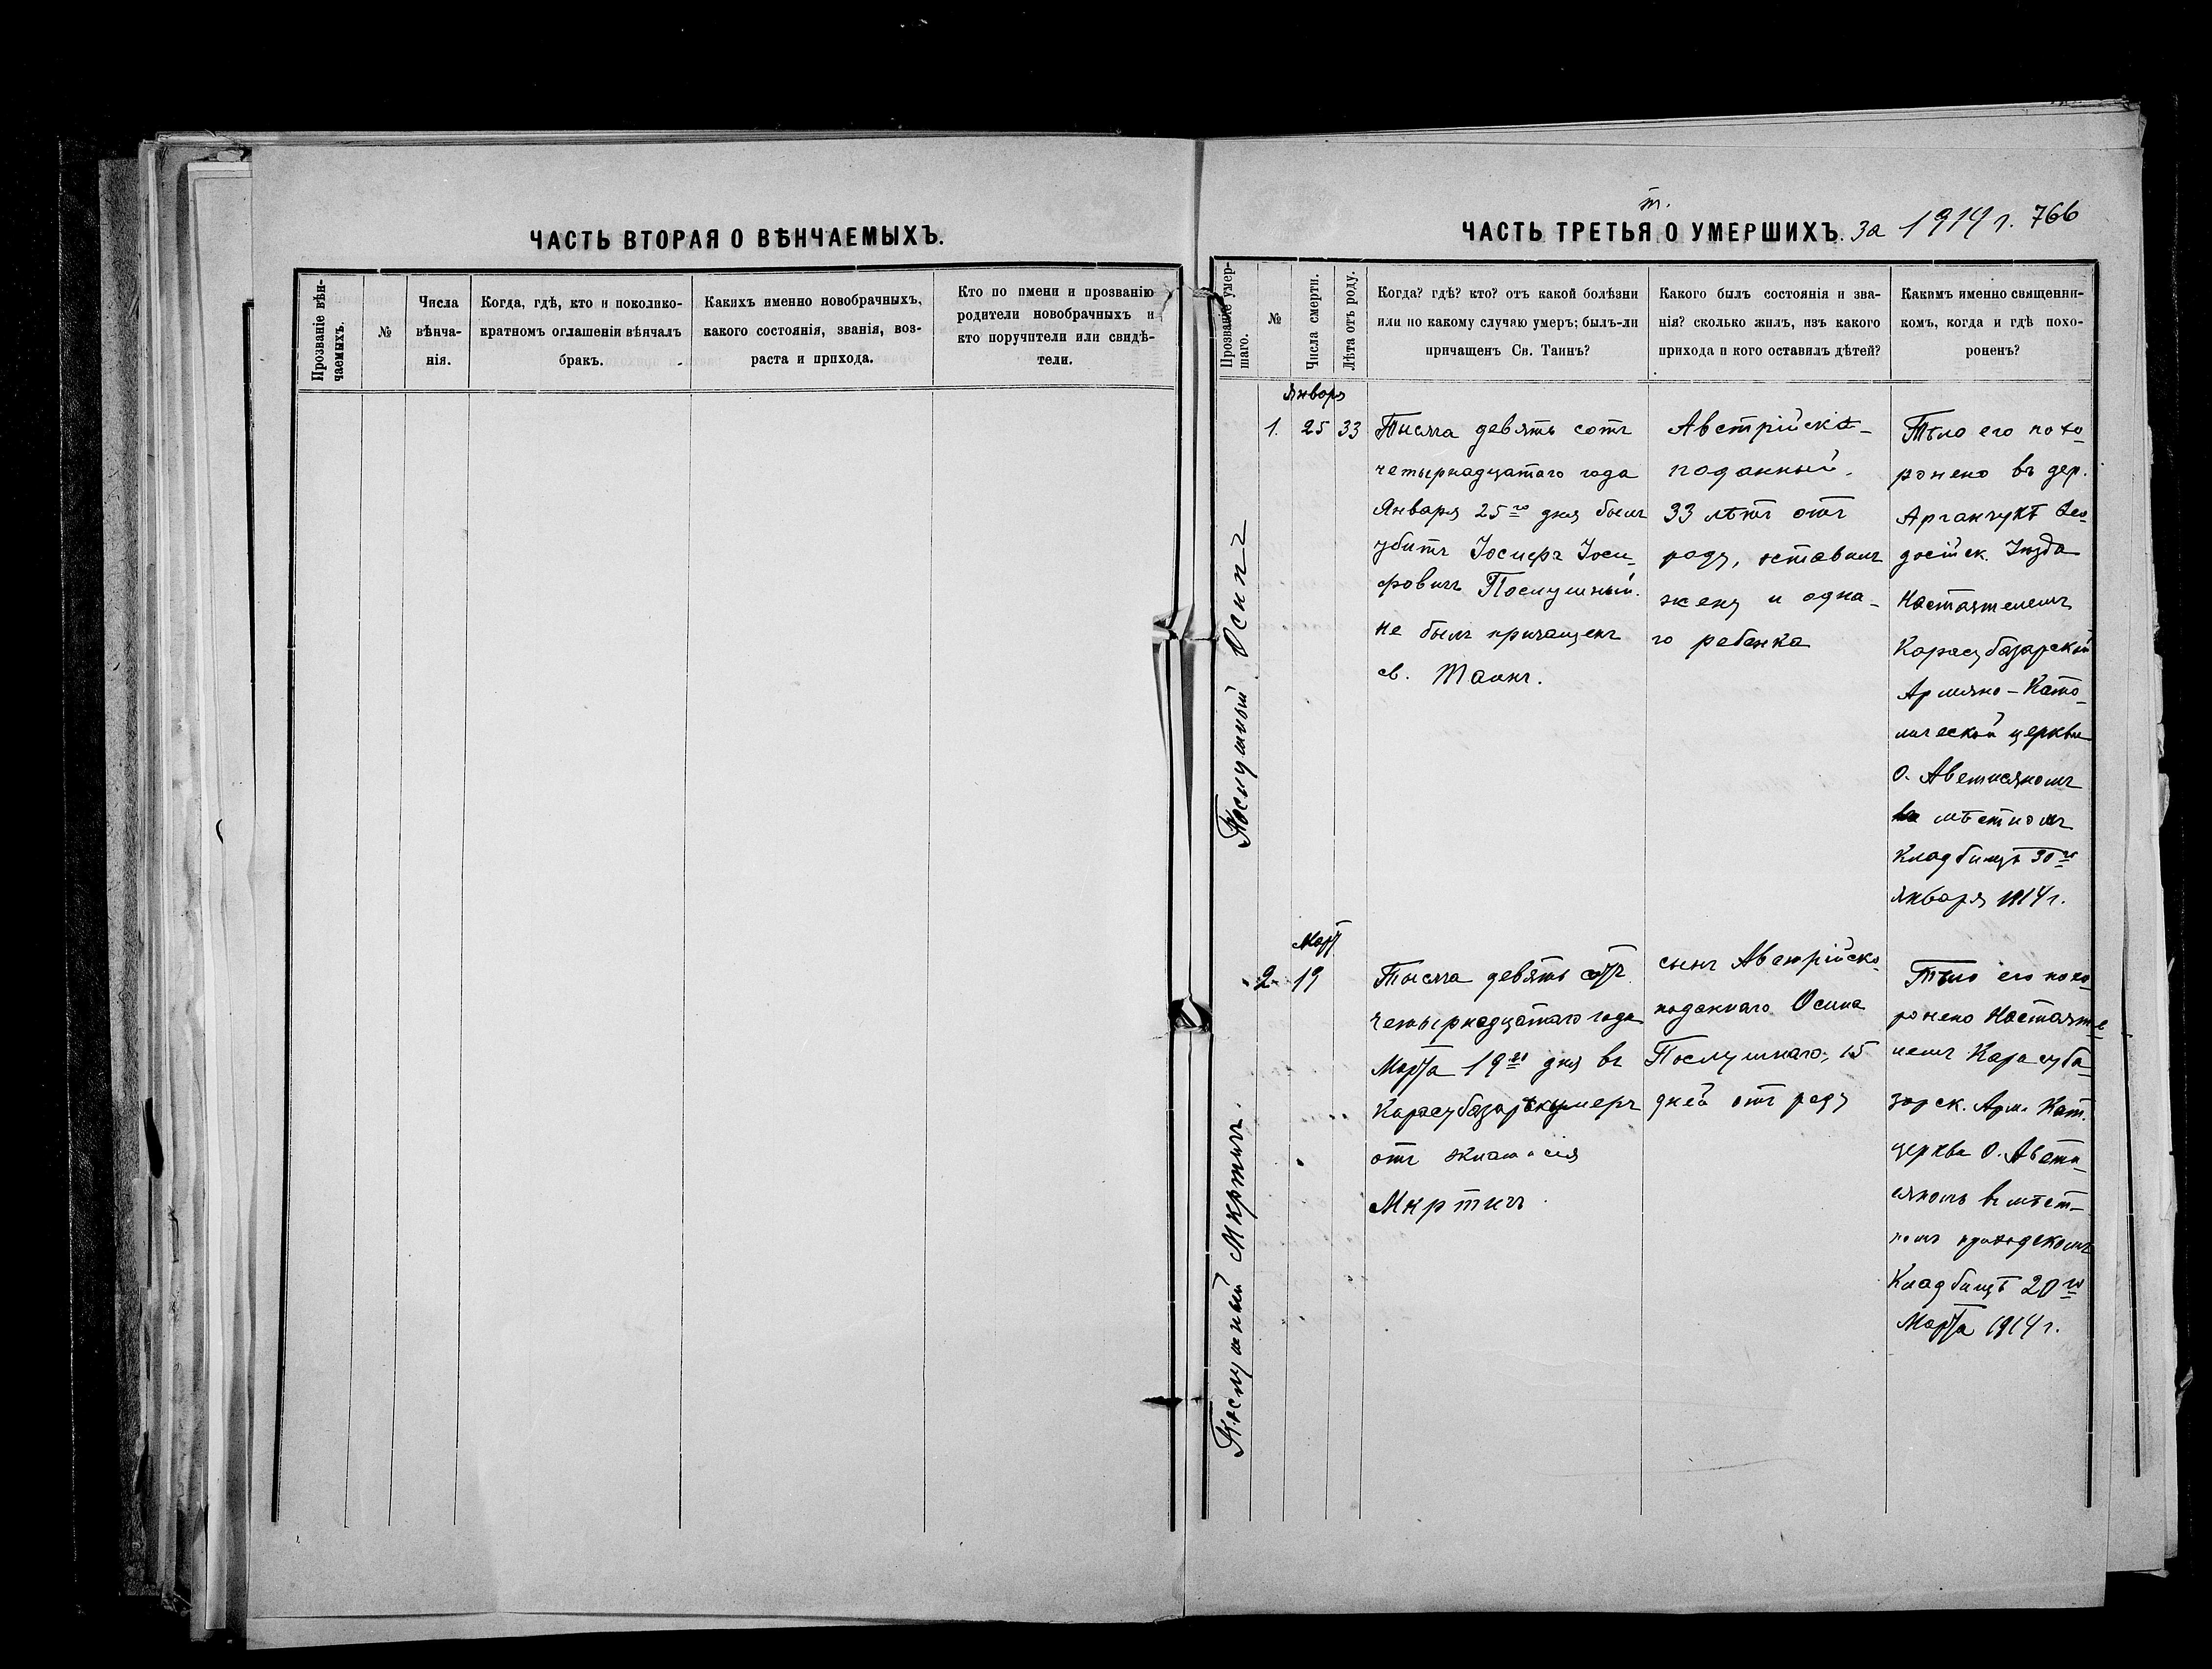 ЧАСТЬ ВТОРАЯ О ВѢНЧАЕМЫХЪ.
Прозваніе вѣн-
чаемыхъ.
№
Числа
вѣнча-
нія.
Когда, гдѣ, кто и поколико-
кратномъ оглашеніи вѣнчалъ
бракъ.
Какихъ именно новобрачныхъ,
какого состоянія, званія, воз-
раста и прихода.
Кто по имени и прозванію
родители новобрачныхъ и
кто поручители или свидѣ-
тели.
ЧАСТЬ ТРЕТЬЯ О УМЕРШИХЪ. за 1914 г. 766
Прозваніе умер-
шаго.
№
Числа смерти.
Лѣта отъ роду.
Когда? гдѣ? кто? отъ какой болѣзни
или по какому случаю умеръ; былъ-ли
причащенъ Св. Таинъ?
Какого былъ состоянія и зва-
нія? сколько жилъ, изъ какого
прихода и кого оставилъ дѣтей?
Какимъ именно священни-
комъ, когда и гдѣ похо-
роненъ?
Послушный Осипъ
Январь
1. 25 33
Тысяча девять сотъ
четырнадцатаго года
Января 25го дня былъ
убитъ Іосифъ Іоси-
фовичъ Послушный.
не былъ причащенъ
св. Таинъ.
Австрійско-
поданный.
33 лѣтъ отъ
роду, оставилъ
жену и одна-
го ребенка
Тѣло его похо-
ронено въ дер.
Арганчукѣ Ѳео-
досійск. Уѣзда
Настоятелемъ
Карасубазарской
Армяно-Като-
лической церкви
О. Аветисяномъ
на мѣстномъ
Кладбищѣ 30го
Января 1914 г.
Послушный Мкртичъ.
Март
2. 19
Тысяча девять сотъ
четырнадцатаго года
Марта 19го дня въ
Карасубазарѣ умеръ
отъ
Мкртичъ.
сынъ Австрійско-
поданнаго Осипа
Послушнаго, 15
дней отъ роду
Тѣло его похо-
ронено Настояте-
лемъ Карасуба-
зарск. Арм. Кат.
церкви О. Авети-
сяномъ въ мѣст-
номъ приходскомъ
Кладбищѣ 20го
Марта 1914 г.